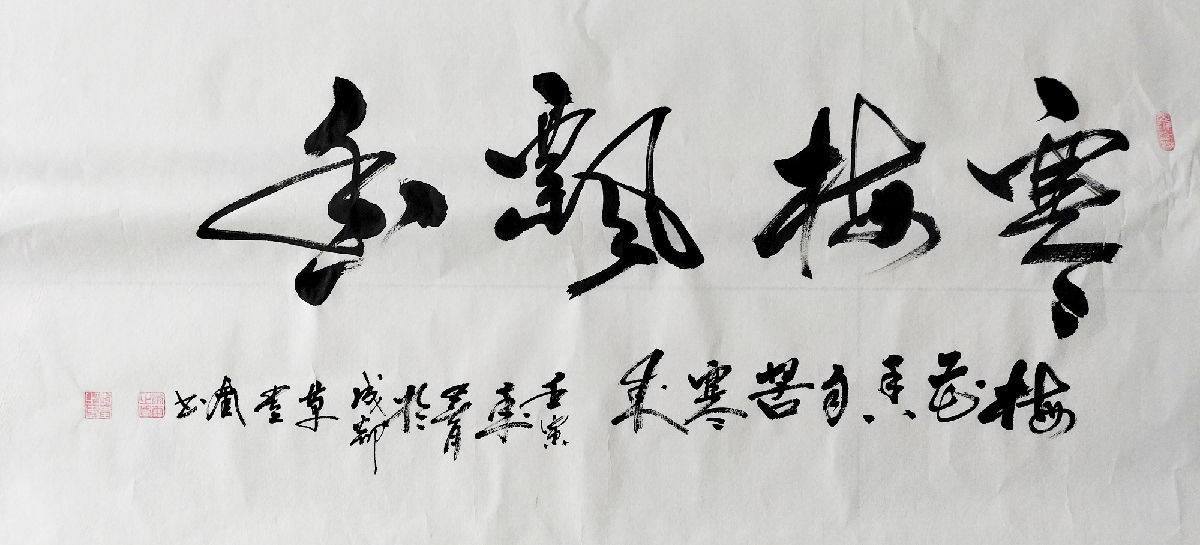 寒梅飘香
梅花香自苦寒来
壬寅年 月於成都草堂 书